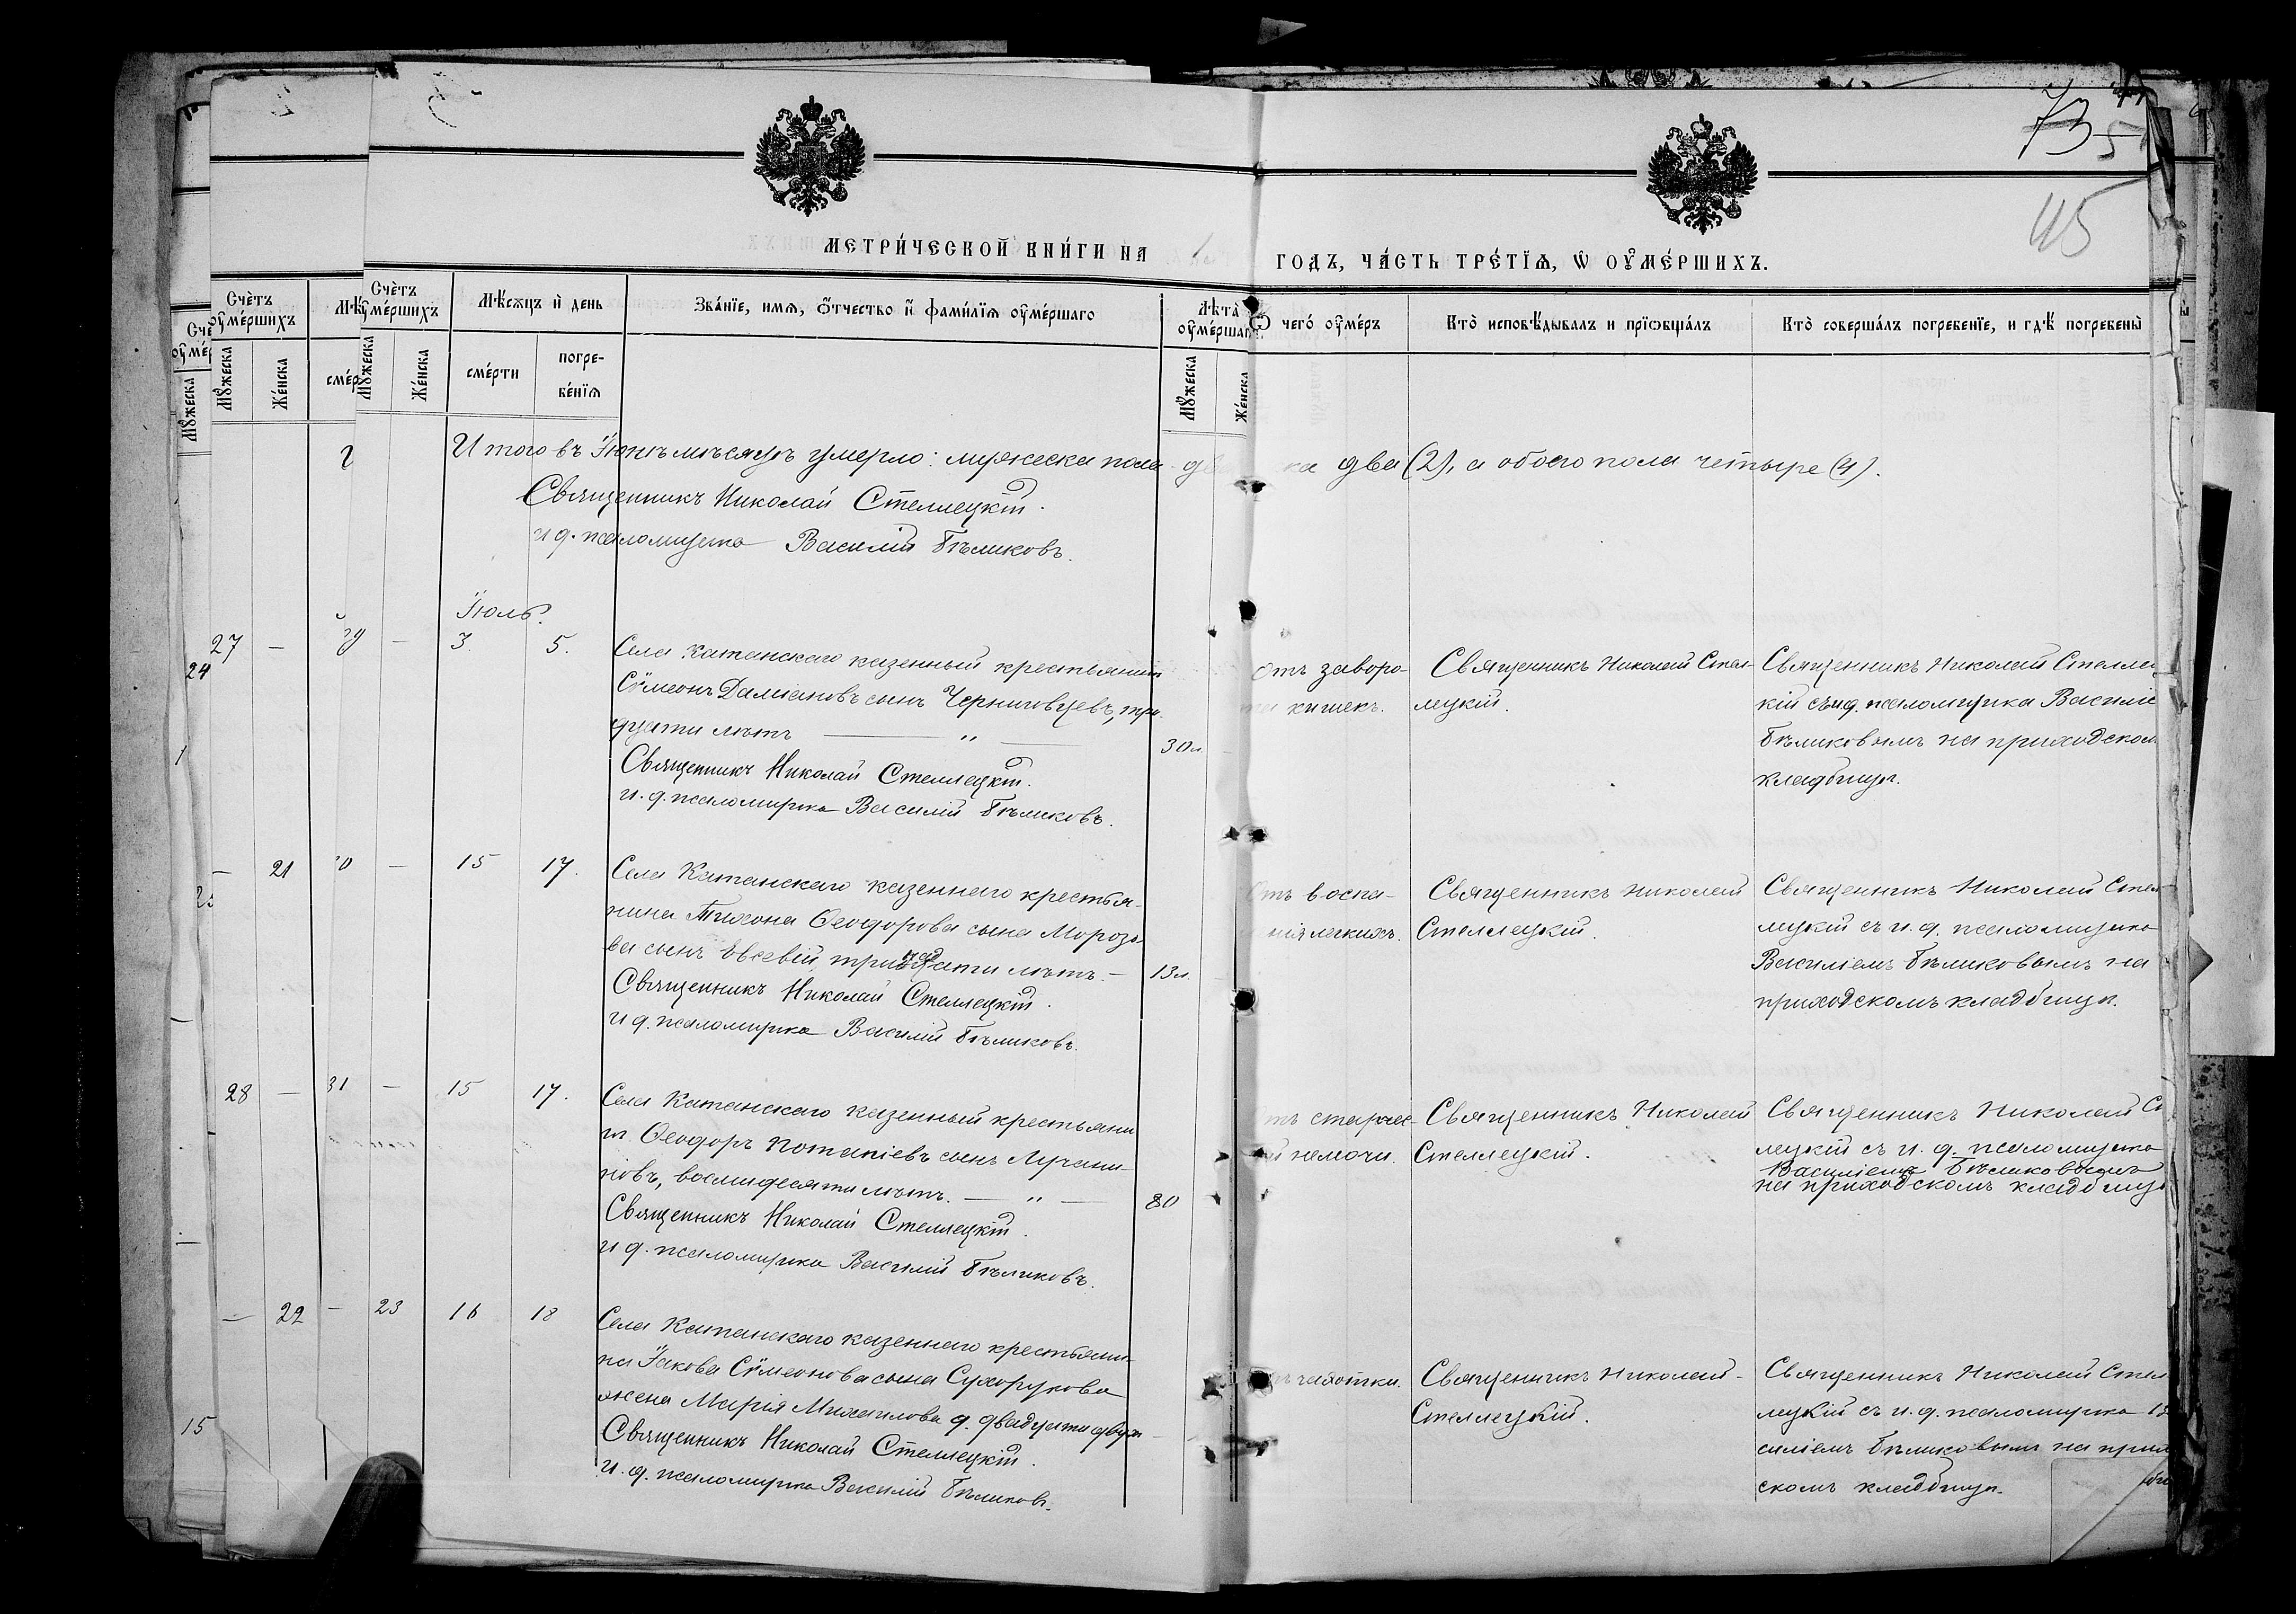 73
45
МЕТРИ́ЧЕСКОЙ КНИ́ГИ НА 1
ГОДЪ, ЧА́СТЬ ТРЕ́ТІѦ, Ѡ ОУМЕ́РШИХЪ.
Сче́тъ оумершихъ
Мꙋжеска
Же́нска
Сче́тъ оумершихъ
Мꙋжеска
Же́нска
Мѣ́сѧцъ и҆ день
сме́рти
погре-
бе́нїѧ
Зва́нїе, имѧ, о҆́тчество и҆ фами́лїѧ оумершаго
Лѣта̀ оумершаго
Мꙋжеска
Же́нска
Ѿ чего́ оумеръ
Кто̀ исповѣ́дывалъ и прїѡбща́лъ
Кто̀ соверша́лъ погребенїе, и гдѣ̀ погребены̀
Итого въ Іюнѣ мѣсяцѣ умерло: мужеска пола два (2), а обоего пола четыре (4).
Священникъ Николай Стеллецкій.
и д. псаломщика Василій Бѣликовъ.
Іюль.
27 — 3. 5.
Села Катанскаго казенный крестьянинъ
Сѵмеонъ Даміановъ сынъ Черниговцевъ, три-
дцати лѣтъ — " — 30 л.
Священникъ Николай Стеллецкій.
и. д. псаломщика Василій Бѣликовъ.
отъ заворо-
кишекъ.
Священникъ Николай Стел-
лецкій.
Священникъ Николай Стеллец
кій съ и д. псаломщика Василіе
Бѣликовымъ на приходском
кладбищѣ.
— 21 — 15 17.
Села Катанскаго казеннаго крестья-
нина Тихона Ѳеодорова сына Морозо-
ва сынъ Евсевій, тринадцати лѣтъ. — 13 л.
Священникъ Николай Стеллецкій.
и д. псаломщика Василій Бѣликовъ.
Отъ воспа-
нія легкихъ.
Священникъ Николай
Стеллецкій.
Священникъ Николай Стел
лецкій съ и. д. псаломщика
Василіемъ Бѣликовымъ на
приходскомъ кладбищѣ.
28 — 31 — 15 17.
Села Катанскаго казенный крестьяни
нъ Ѳеодоръ Потапіевъ сынъ Лучани-
новъ, восмидесяти лѣтъ. — " — 80
Священникъ Николай Стеллецкій.
и д. псаломщика Василій Бѣликовъ.
тъ старчес-
й немочи.
Священникъ Николай
Стеллецкій.
Священникъ Николай Ст
лецкій съ и. д. псаломщика
Василіемъ Бѣликовымъ
на приходскомъ кладбищѣ
— 22 — 23 16 18
Села Катанскаго казеннаго крестьяни-
на Іакова Сѵмеонова сына Сухорукова
жена Марія Михаилова д. двадцати двухъ
Священникъ Николай Стеллецкій.
и. д. псаломщика Василій Бѣликовъ.
чахотки.
Священникъ Николай
Стеллецкій.
Священникъ Николай Стел
лецкій съ и. д. псаломщика Ва
силіемъ Бѣликовымъ на прихо
скомъ кладбищѣ.
24
15